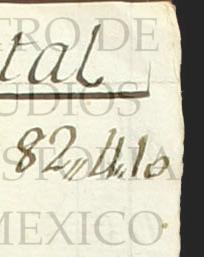 tal
82,,4,,10
TRO DE
UDIOS
STORIA
MEXICO